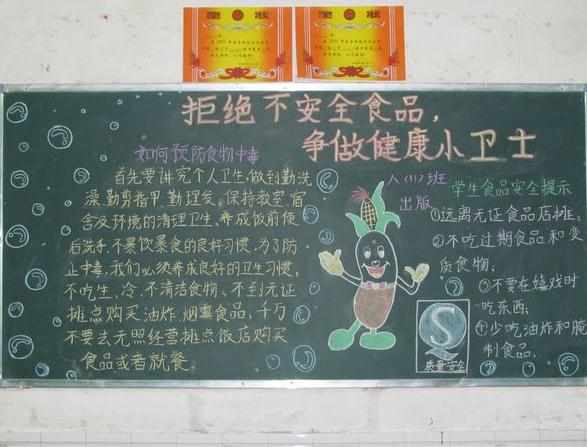 拒绝不安全食品，
争做健康小卫士
如何预防食物中毒
首先要讲究个人卫生，做到勤洗
澡、勤剪指甲、勤理发。保持教室、宿
舍及环境的清理卫生、养成饭前便
后洗手、不暴饮暴食的良好习惯，为了防
止中毒，我们必须养成良好的卫生习惯，
不吃生、冷、不清洁食物、不到无证
摊点购买油炸、烟熏食品，千万
不要去无照经营摊点饭店购买
食品或者就餐。
八(11)班
出版
学生食品安全提示
①远离无证食品店、摊、
②不吃过期食品和变
质食物；
③不要在嬉戏时
吃东西；
④少吃油炸和腌
制食品。
质量安全